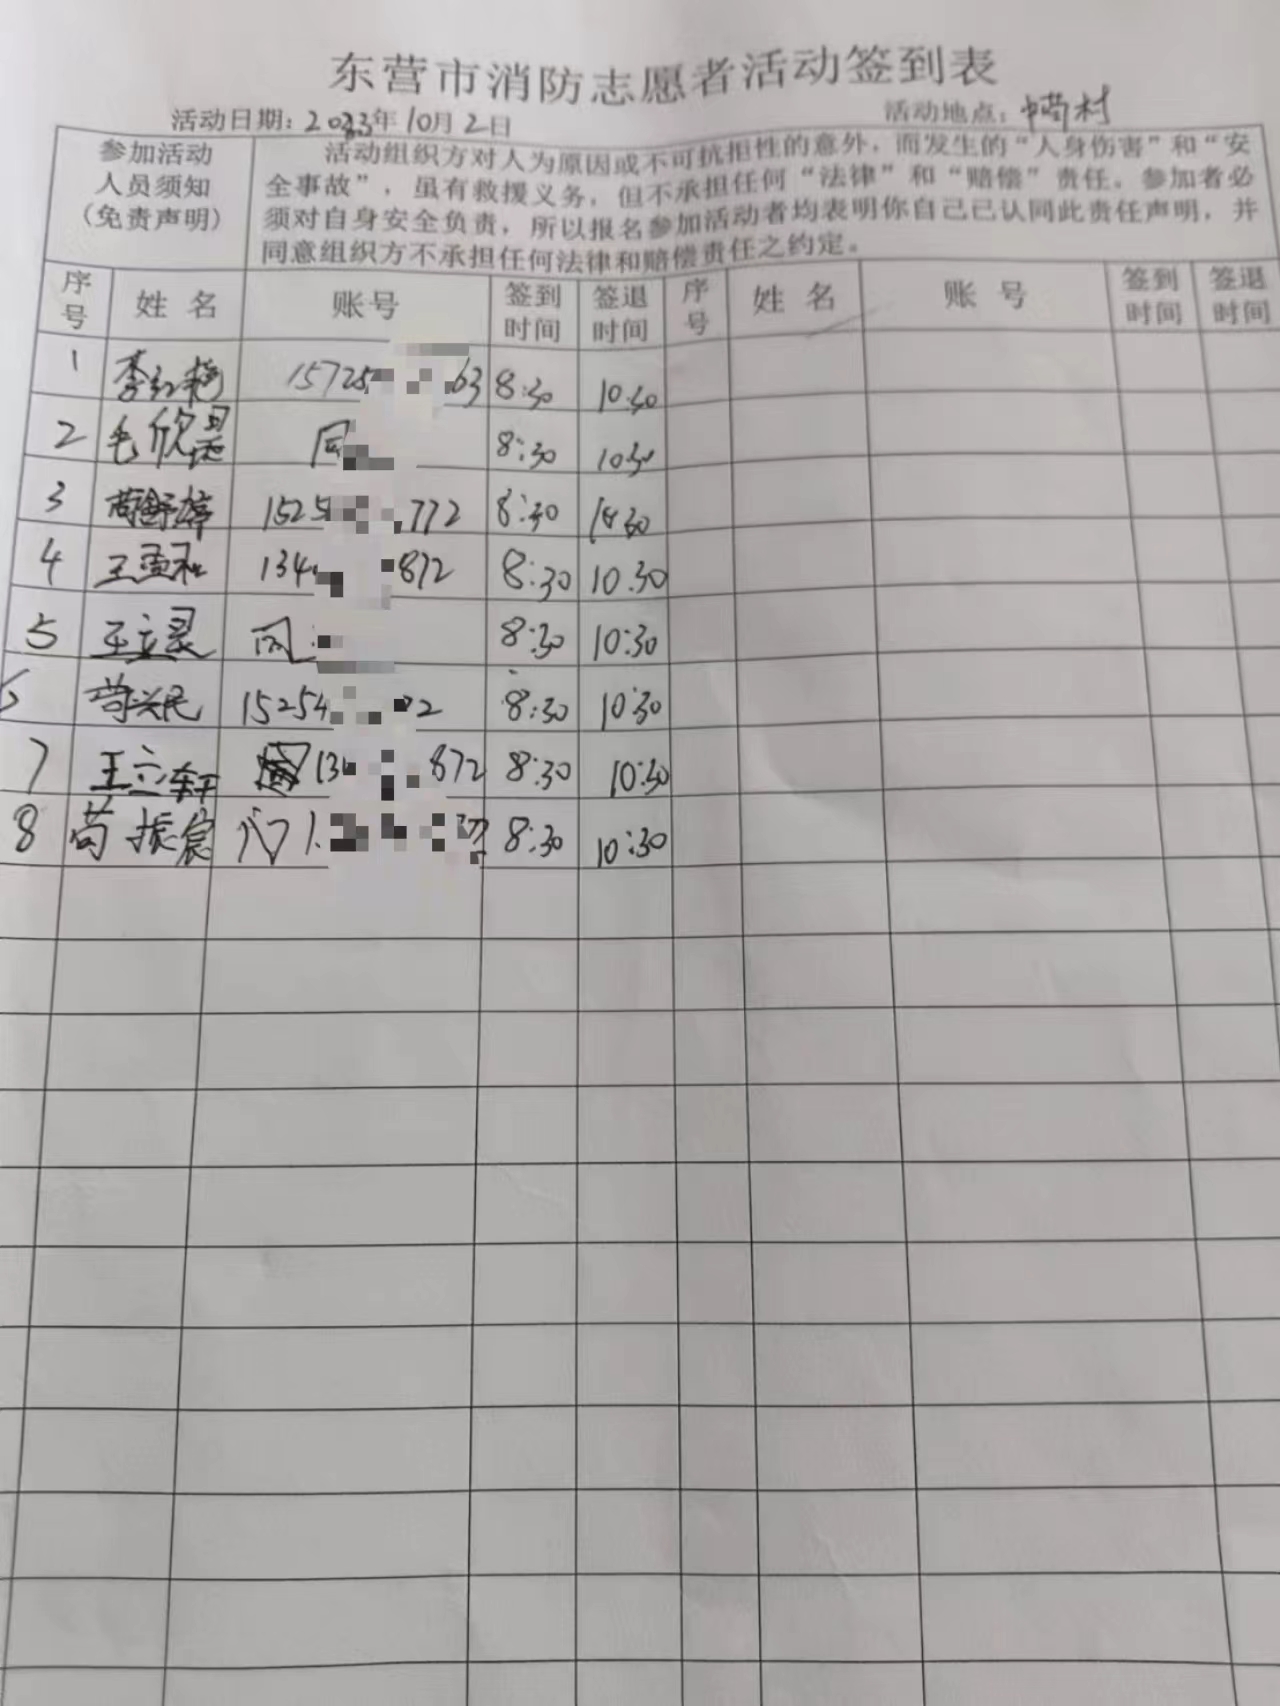 东营市消防志愿者活动签到表
活动日期：2023年10月2日 活动地点：中苟村
参加活动人员须知（免责声明）
活动组织方对人为原因或不可抗拒性的意外，而发生的“人身伤害”和“安
全事故”，虽有救援义务，但不承担任何“法律”和“赔偿”责任。参加者必
须对自身安全负责，所以报名参加活动者均表明你自己已认同此责任声明，并
同意组织方不承担任何法律和赔偿责任之约定。
序号 姓名 账号 签到时间 签退时间 序号 姓名 账号 签到时间 签退时间
1 李红梅 15725 63 8:30 10:30
2 毛欣 同 8:30 10:30
3 苟 152 772 8:30 10:30
4 王孟和 134 872 8:30 10:30
5 王立灵 同 8:30 10:30
6 苟兴民 15254 2 8:30 10:30
7 王立轩 13 872 8:30 10:30
8 苟振宸 8:30 10:30